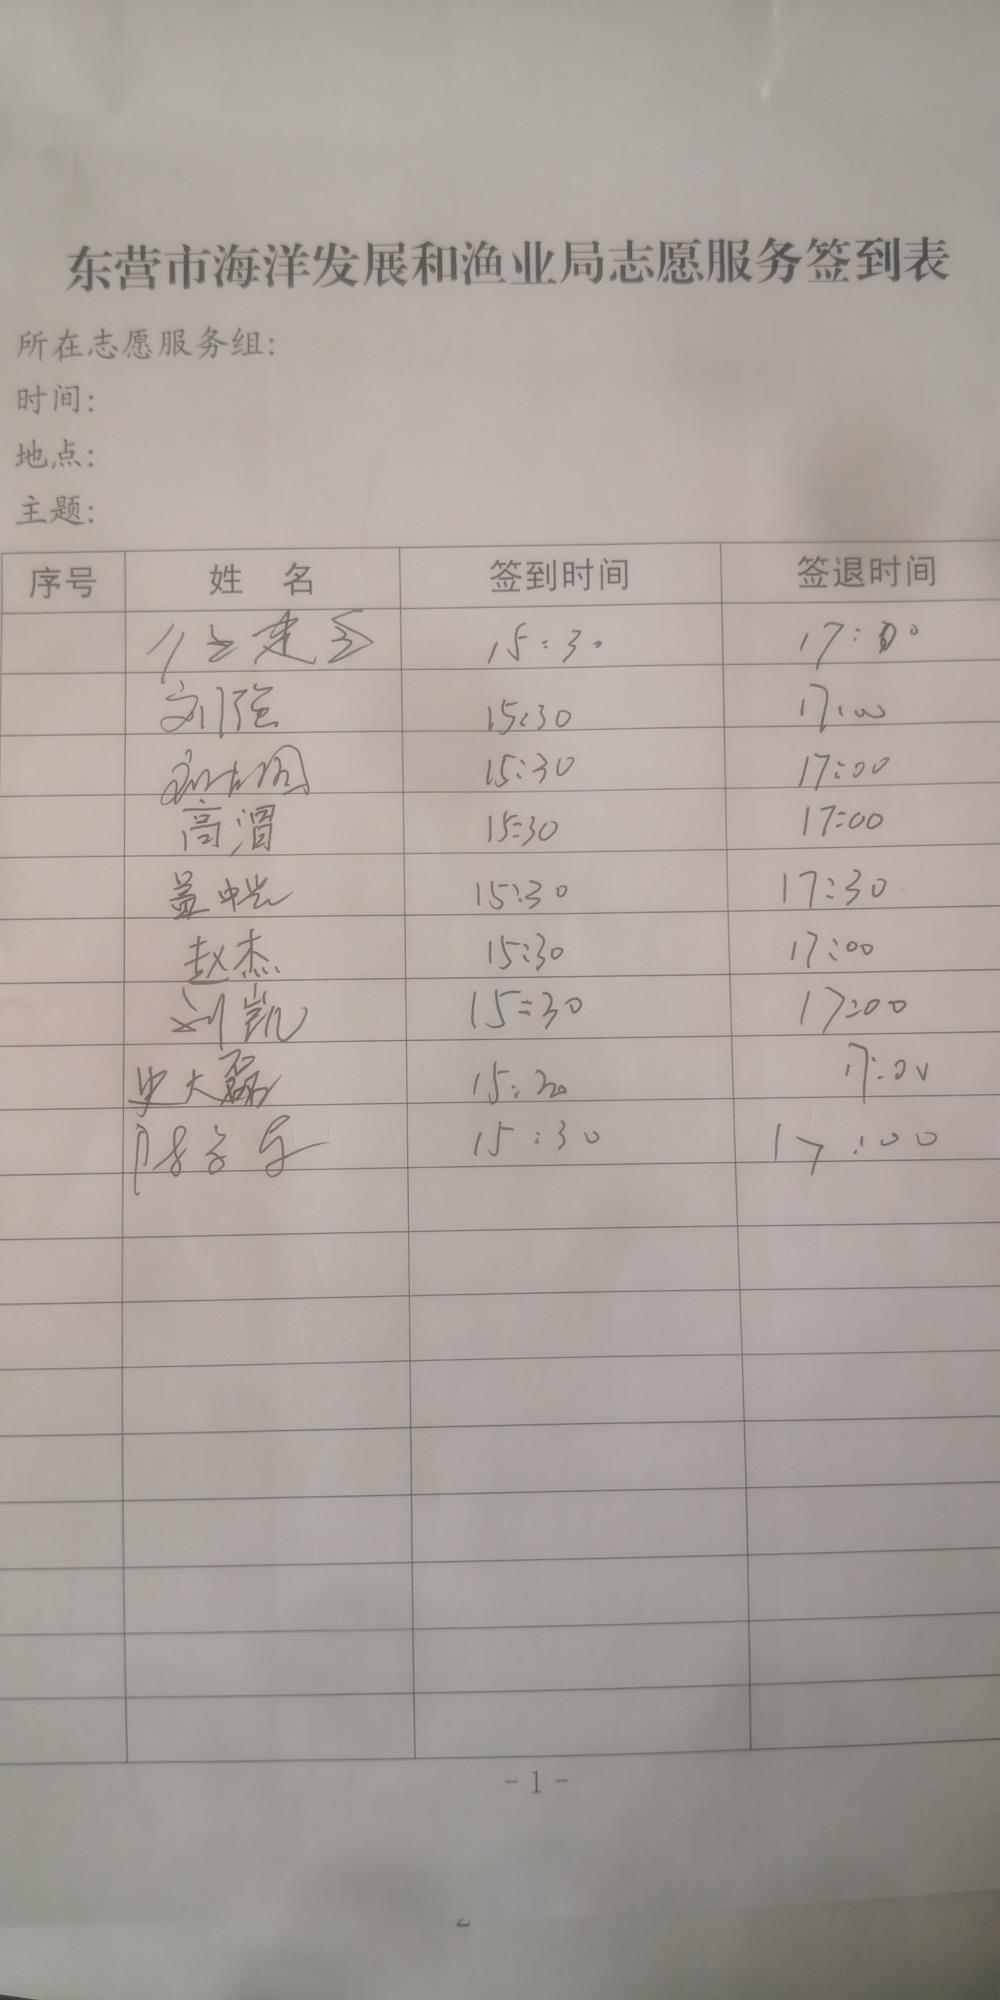 东营市海洋发展和渔业局志愿服务签到表
所在志愿服务组：
时间：
地点：
主题：
序号 姓 名 签到时间 签退时间
15:30 17:00
刘强 15:30 17:00
15:30 17:00
高渭 15:30 17:00
盖 15:30 17:30
赵杰 15:30 17:00
刘凯 15:30 17:00
史大磊 15:30 17:00
15:30 17:00
- 1 -